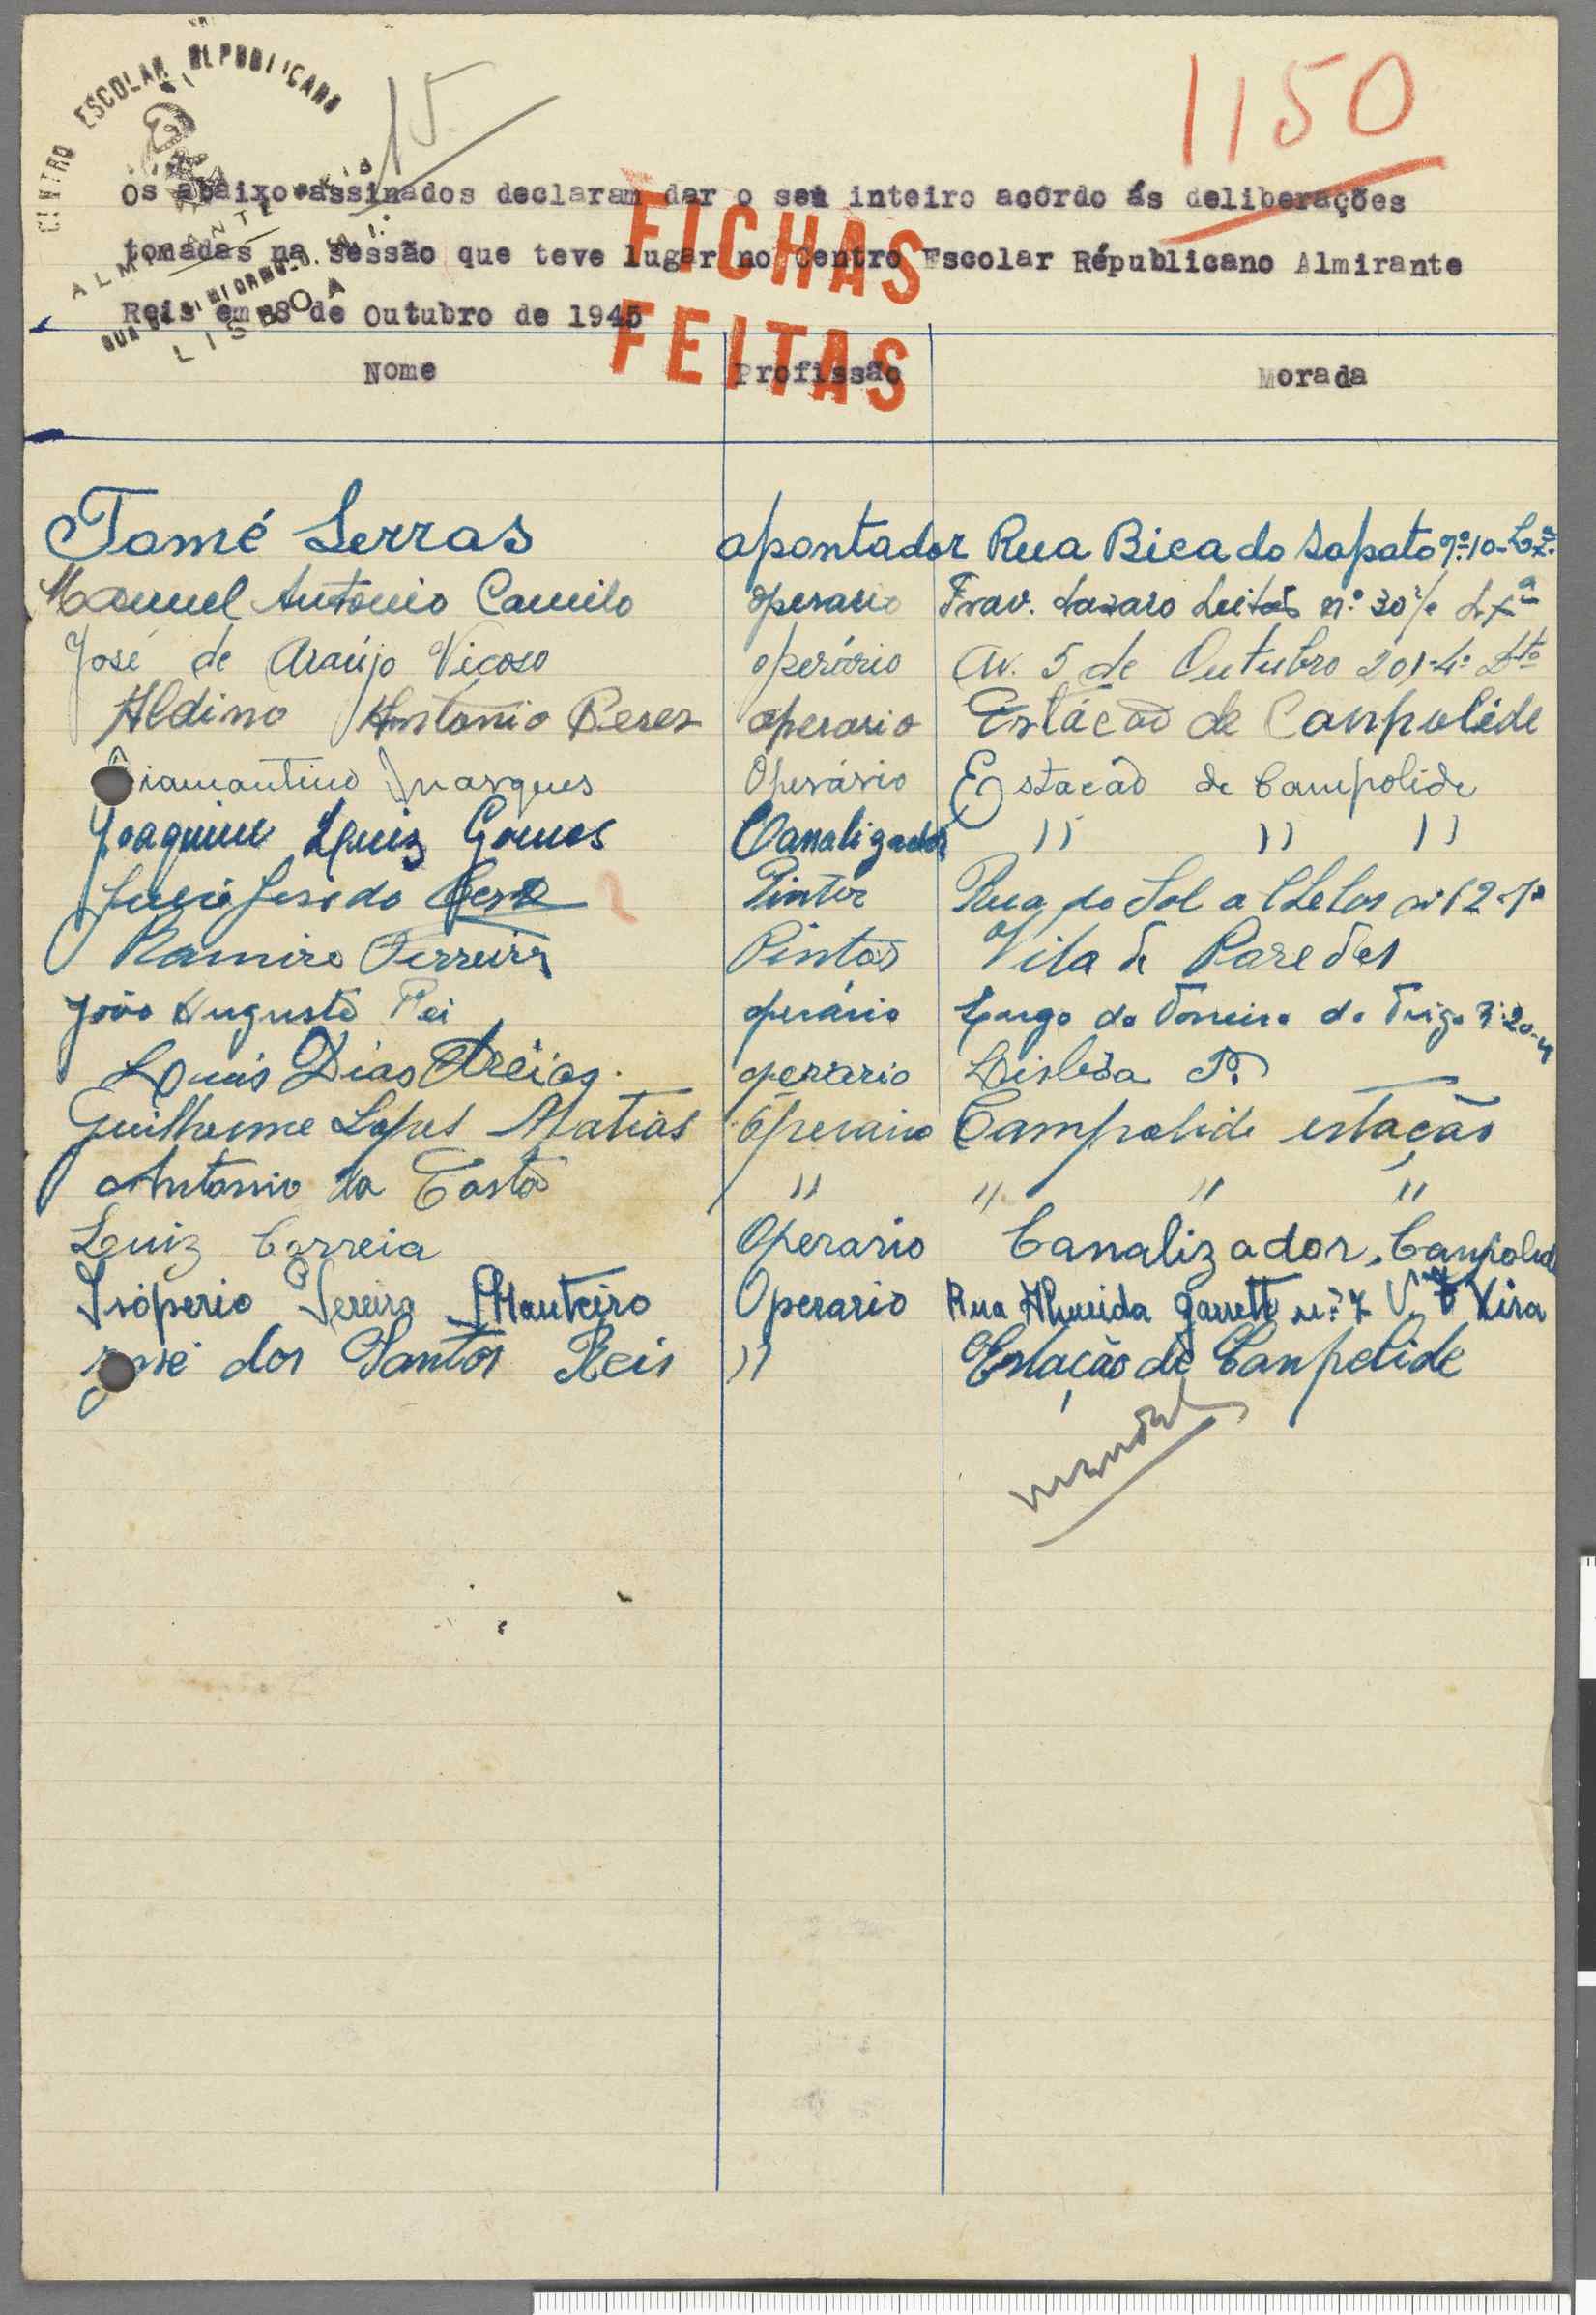 CENTRO ESCOLAR REPUBLICANO
ALMIRANTE REIS
LISBOA
15
1150
Os abaixo assinados declaram dar o seu inteiro acôrdo ás deliberações
tomadas na sessão que teve lugar no Centro Escolar Républicano Almirante
Reis em 8 de Outubro de 1945
FICHAS
FEITAS
Nome Profissão Morada
Tomé Serras apontador Rua Bica do Sapato nº 10-Lxª
Manuel Antonio Camilo operario Trav. Lazaro Leitão n.º 30 Lxª
José de Araújo Viçoso operário Av. 5 de Outubro 201-4º Dto
Aldino Antonio Peres operario Estácão de Canpolide
Diamantino Marques Operário Estacão de Campolide
Joaquim Luiz Gomes Canalizador " " "
Pintor Rua do Sol a Chelas
Ramiro Ferreira Pintor Vila de Paredes
João Augusto Rei operário Largo do Terreiro do Trigo
Luis Dias Areias operario Lisboa P.
Guilherme Lopes Matias Operario Campolide estação
Antonio da Costa " " " "
Luiz Correia Operario Canalizador, Canpolide
Isóperio Pereira Monteiro Operario Rua Almeida Garrett n.º 7 Vª Fª Xira
José dos Santos Reis " Estação de Canpolide